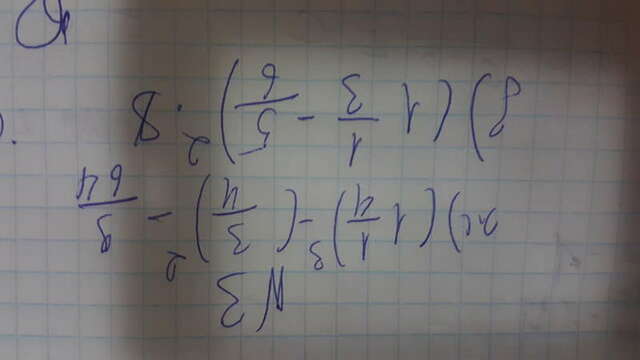 N3
ж) (1 1/4)³ - (3/4)² - 9/64
з) (1 1/3 - 5/6)² · 8